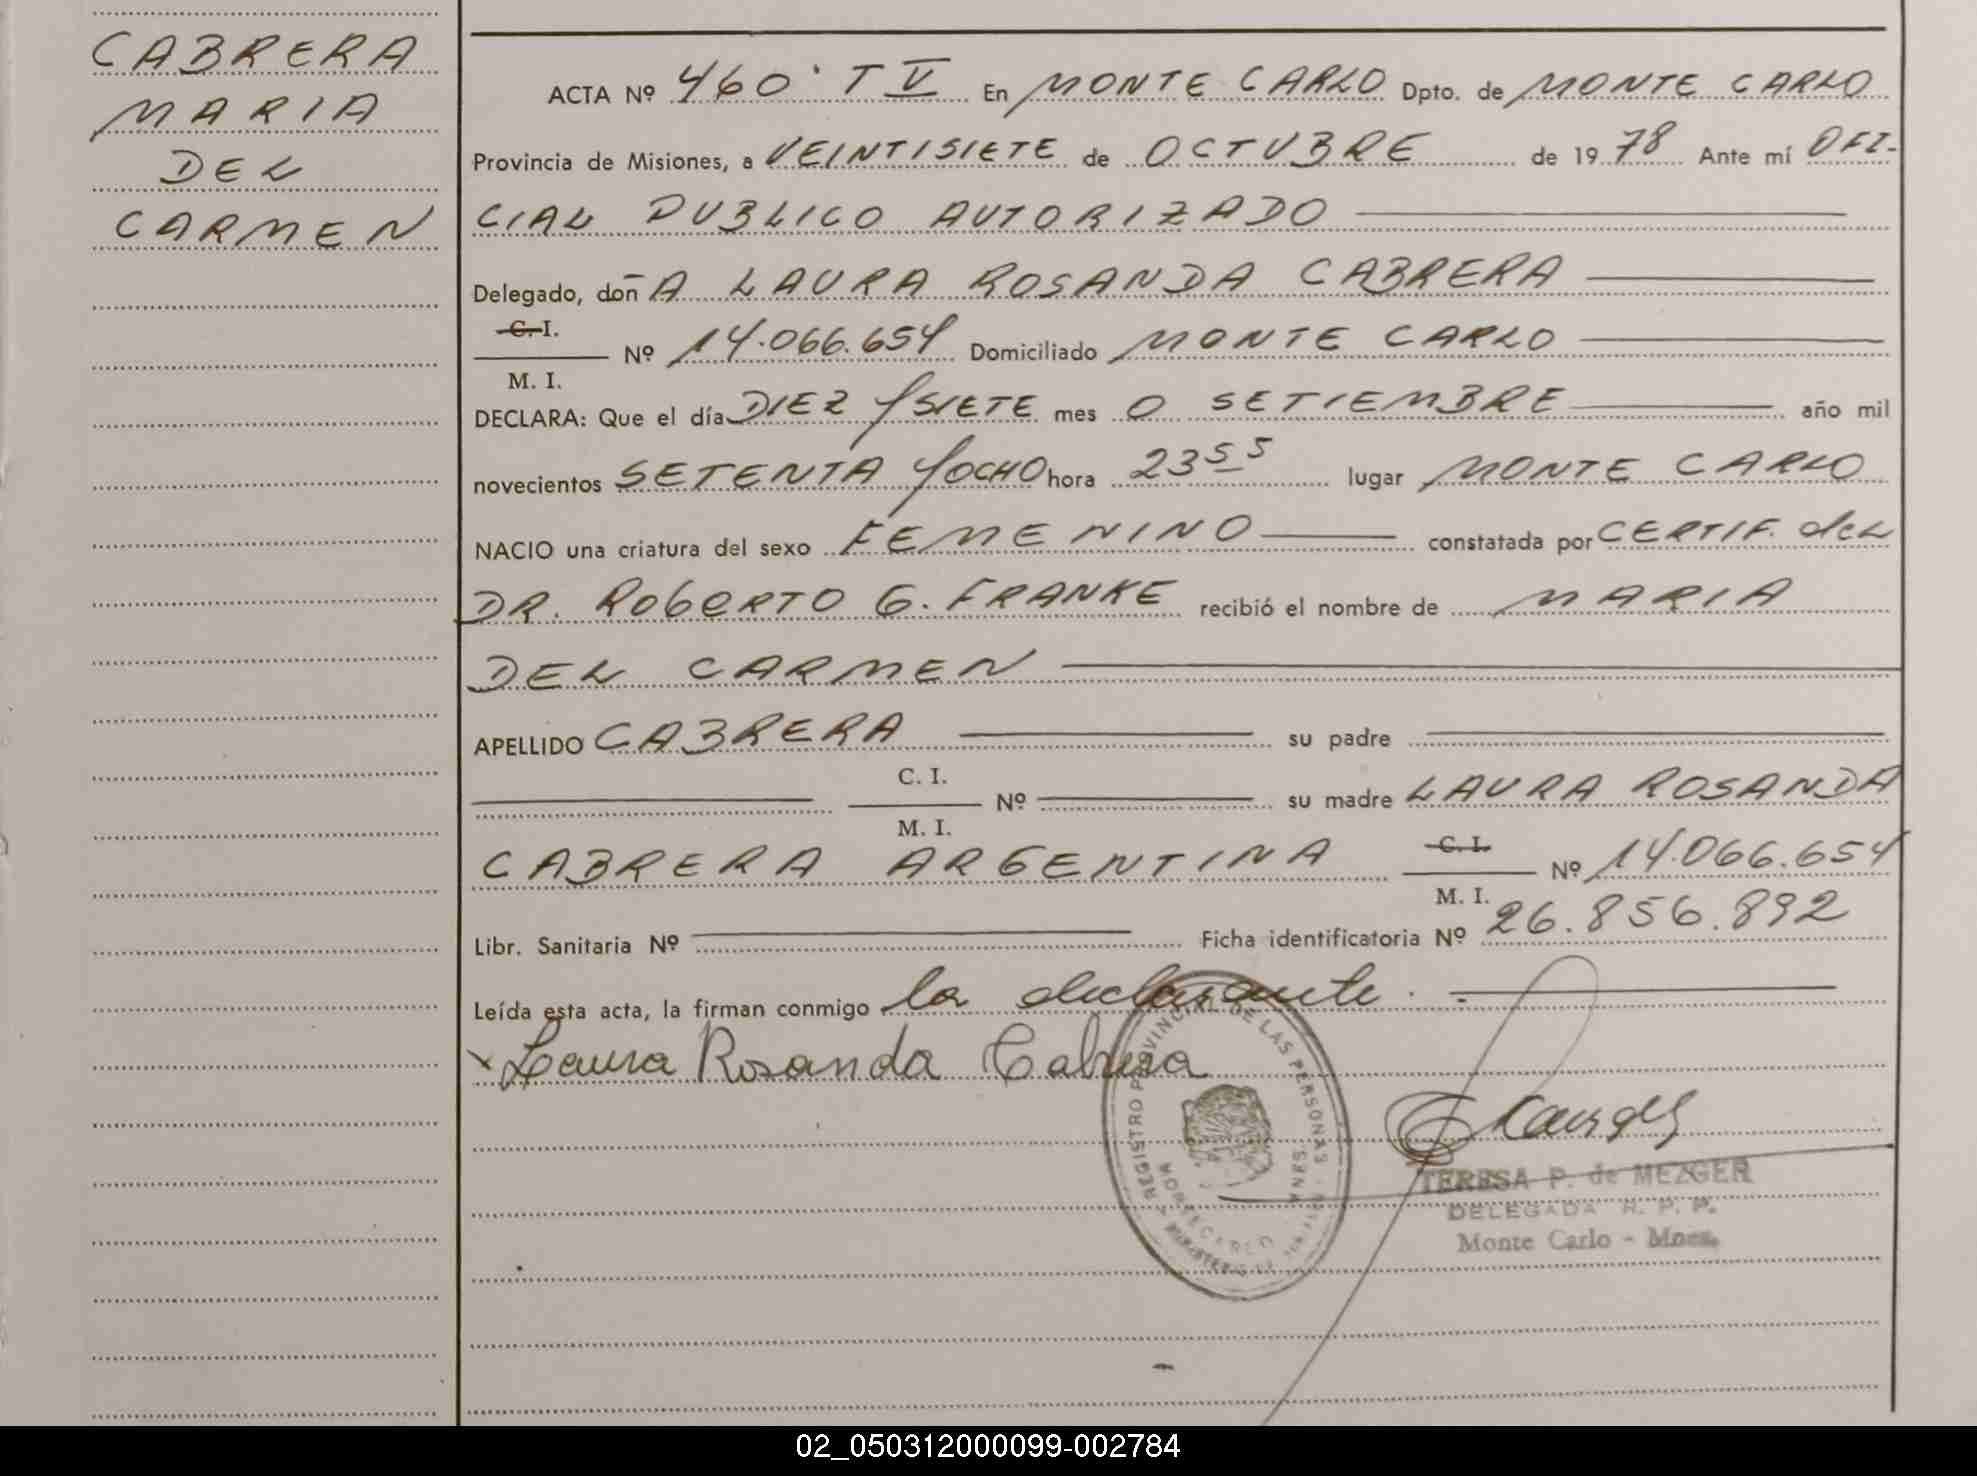 CABRERA
MARIA
DEL
CARMEN
ACTA Nº 460 T V En MONTE CARLO Dpto. de MONTE CARLO
Provincia de Misiones, a VEINTISIETE de OCTUBRE de 1978 Ante mí OFI-
CIAL PUBLICO AUTORIZADO
Delegado, doñA LAURA ROSANDA CABRERA
C. I.
Nº 14.066.654 Domiciliado MONTE CARLO
M. I.
DECLARA: Que el día DIEZ Y SIETE mes O SETIEMBRE año mil
novecientos SETENTA Y OCHO hora 23 55 lugar MONTE CARLO
NACIO una criatura del sexo FEMENINO constatada por CERTIF. del
DR. ROBERTO G. FRANKE recibió el nombre de MARIA
DEL CARMEN
APELLIDO CABRERA su padre
C. I.
Nº su madre LAURA ROSANDA
M. I.
CABRERA ARGENTINA C. I. Nº 14.066.654
M. I.
Libr. Sanitaria Nº Ficha identificatoria Nº 26.856.892
Leída esta acta, la firman conmigo la declarante.
x Laura Rosanda Cabrera
REGISTRO PROVINCIAL DE LAS PERSONAS
TERESA P. de MEZGER
DELEGADA R. P. P.
Monte Carlo - Mnes.
02_050312000099-002784